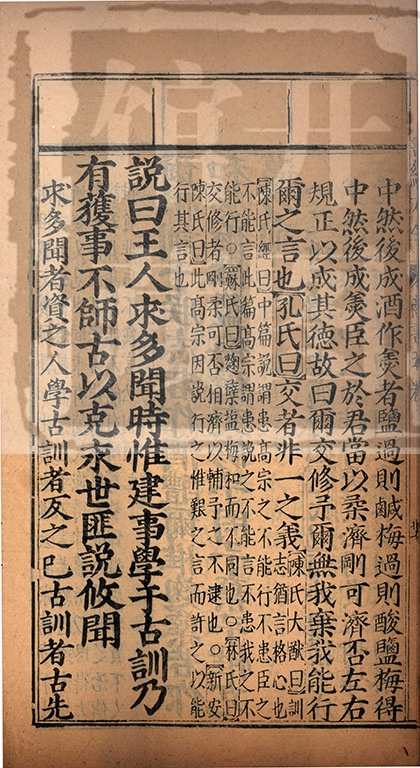 中然後成酒作羹者鹽過則鹹梅過則酸鹽梅得
中然後成羹臣之於君當以柔濟剛可濟否左右
規正以成其德故曰爾交修予爾無我棄我能行
爾之言也孔氏曰交者非一之義陳氏大猷曰訓
志猶言格心也
陳氏經曰中篇說謂患高宗之不能行不患臣之
不能言此篇高宗謂患說之不能言不患我之不
能行○蘇氏曰麴糵鹽梅和而不同也○林氏曰
交修者剛柔可否相濟以輔予之不逮也○新安
陳氏曰此高宗因說行之惟艱之言而許之以能
行其言也
說曰王人求多聞時惟建事學于古訓乃
有獲事不師古以克永世匪說攸聞
求多聞者資之人學古訓者反之已古訓者古先